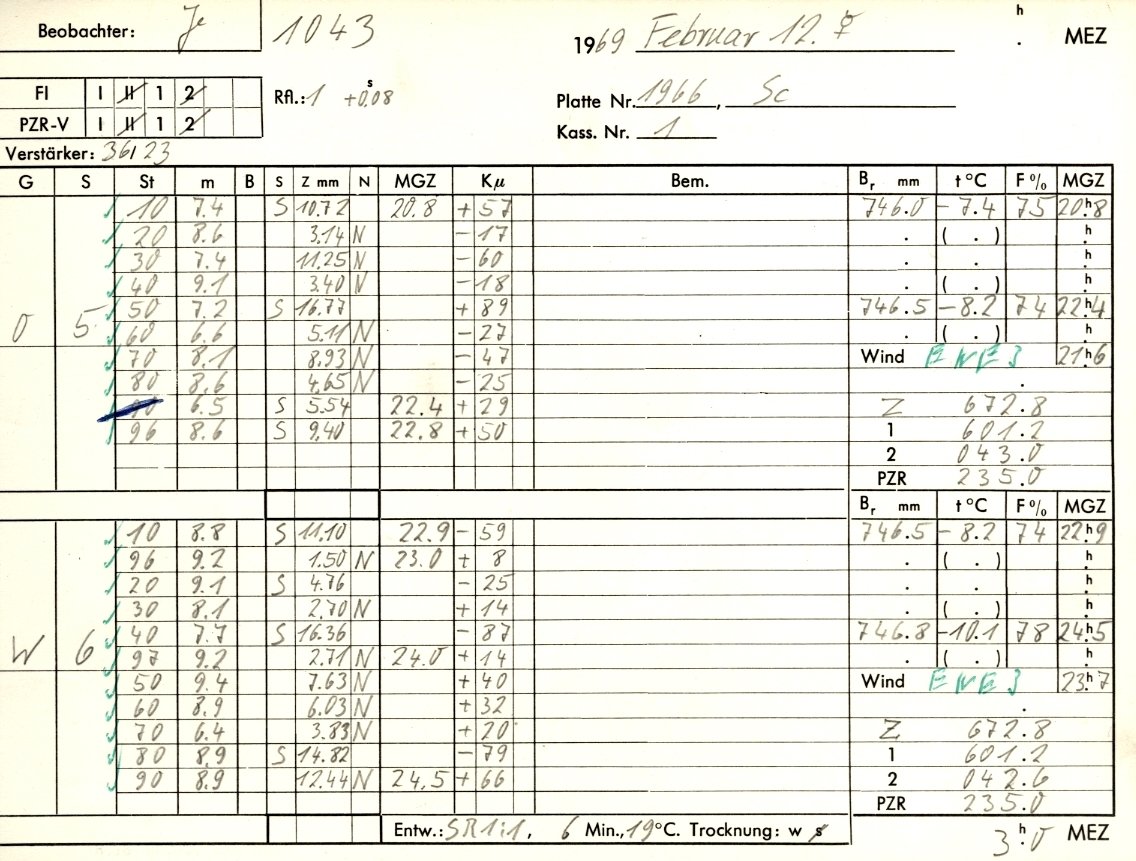 Beobachter: Je 1043 1969 Februar 12. ♀ h . MEZ
FI I II 1 2 Rfl.: 1 +0.08 s Platte Nr. 1966, Sc
PZR-V I II 1 2 Kass. Nr. 1
Verstärker: 36/23
G S St m B S Z mm N MGZ Kμ Bem. Br mm t °C F % MGZ
10 7.4 S 10.72 20.8 + 57 746.0 - 7.4 75 20h.8
20 8.6 3.14 N - 17 . ( . ) h.
30 7.4 11.25 N - 60 . . h.
40 9.1 3.40 N - 18 . ( . ) h.
O 5 50 7.2 S 16.77 + 89 746.5 - 8.2 74 22h.4
60 6.6 5.11 N - 27 . ( . ) h.
70 8.1 8.93 N - 47 Wind ENE 3 21h.6
80 8.6 4.65 N - 25 .
90 6.5 S 5.54 22.4 + 29 Z 672.8
96 8.6 S 9.40 22.8 + 50 1 601.2
2 043.0
PZR 235.0
Br mm t °C F % MGZ
10 8.8 S 11.10 22.9 - 59 746.5 - 8.2 74 22h.9
96 9.2 1.50 N 23.0 + 8 . ( . ) h.
20 9.1 S 4.76 - 25 . . h.
30 8.1 2.70 N + 14 . ( . ) h.
W 6 40 7.7 S 16.36 - 87 746.8 - 10.1 78 24h.5
97 9.2 2.71 N 24.0 + 14 . ( . ) h.
50 9.4 7.63 N + 40 Wind ENE 3 23h.7
60 8.9 6.03 N + 32 .
70 6.4 3.83 N + 20 Z 672.8
80 8.9 S 14.82 - 79 1 601.2
90 8.9 12.44 N 24.5 + 66 2 042.6
PZR 235.0
Entw.: SR1:1, 6 Min., 19°C. Trocknung: w s 3h.0 MEZ